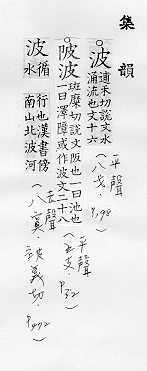 集韻
波
逋禾切說文水
涌流也文十六
平聲
(八戈)
P.198
陂波
班糜切說文阪也一曰池也
一曰澤障或作波文二十八
平聲
(五支)
P.32
波
循
水
行也漢書傍
南山北波河
去聲
(八寘)
彼義切
P.472